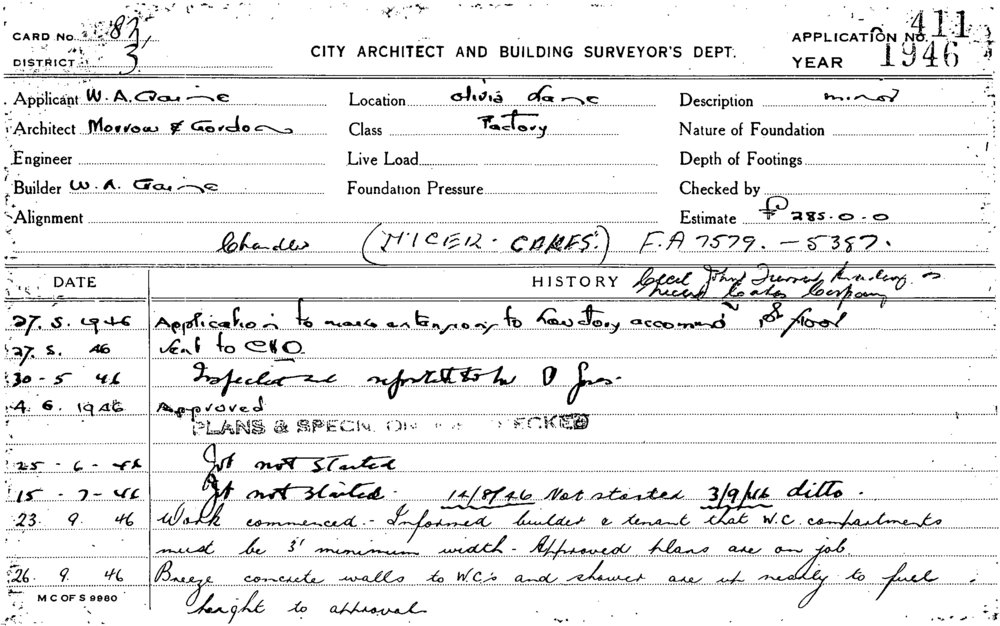 CARD No 82
DISTRICT 3
CITY ARCHITECT AND BUILDING SURVEYOR'S DEPT.
APPLICATION No. 411
YEAR 1946
Applicant W. A.
Location Olivia Lane
Description minor
Architect Morrow & Gordon
Class Factory
Nature of Foundation
Engineer
Live Load
Depth of Footings
Builder W. A.
Foundation Pressure
Checked by
Alignment
Estimate £ 285.0.0
Chandler (NICER. CAKES.) F.A 7579. - 5387.
DATE
HISTORY Cecil John Building
Company
27. 5. 1946 Application to make extensions to lavatory accommo 1st floor
27. 5. 46 sent to CHO
30 - 5 46 Inspected and reported to Mr
4. 6. 1946 Approved
PLANS & SPECN. ECKED
25 - 6 - 46 Job not started
15 - 7 - 46 Job not started. 14/8/46 Not started 3/9/46 ditto.
23. 9. 46 Work commenced - Informed builder & tenant that W.C. compartments
must be 3' minimum width - Approved plans are on job
26. 9. 46 Breeze concrete walls to WC's and shower are up nearly to full
height to approval
M C OF S 9980